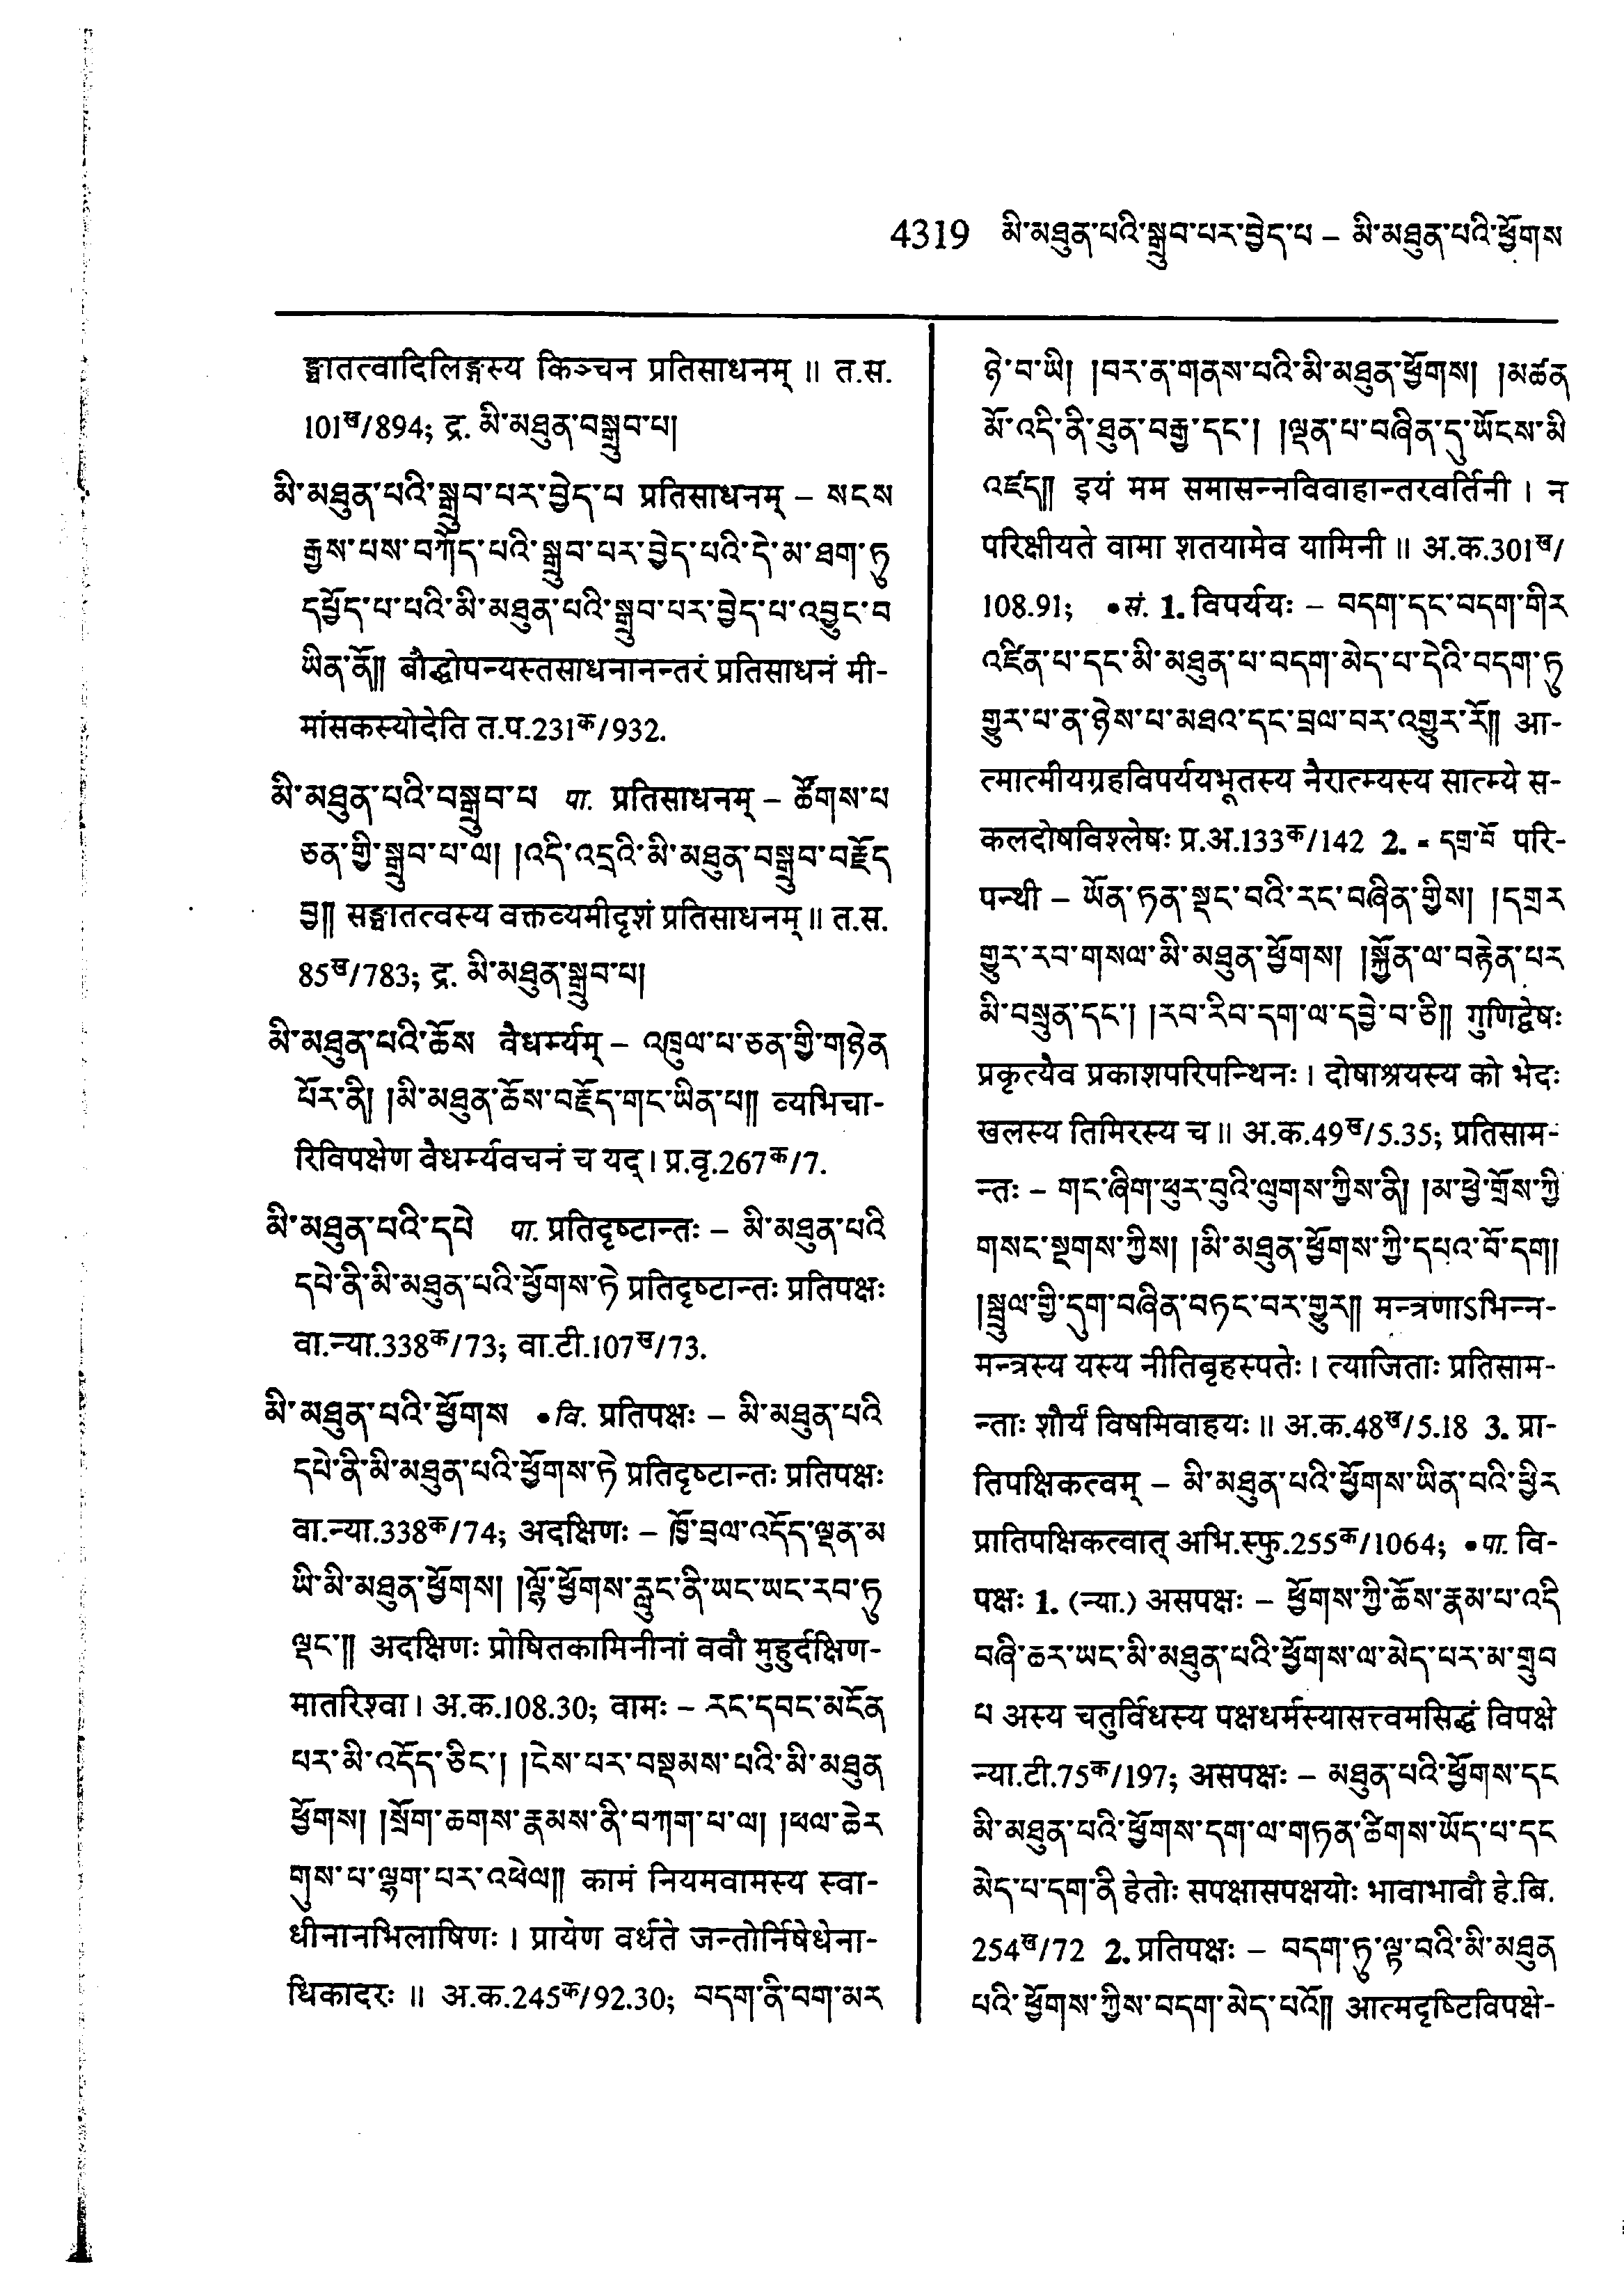 4319 མི་མཐུན་པའི་སྒྲུབ་པར་བྱེད་པ – མི་མཐུན་པའི་ཕྱོགས
ङ्घातत्वादिलिङ्गस्य किञ्चन प्रतिसाधनम् ॥ त.स.
101ख/894; द्र. མི་མཐུན་བསྒྲུབ་པ།
མི་མཐུན་པའི་སྒྲུབ་པར་བྱེད་པ प्रतिसाधनम् – སངས
རྒྱས་པས་བཀོད་པའི་སྒྲུབ་པར་བྱེད་པའི་དེ་མ་ཐག་ཏུ
དཔྱོད་པ་པའི་མི་མཐུན་པའི་སྒྲུབ་པར་བྱེད་པ་འབྱུང་བ
ཡིན་ནོ༎ बौद्धोपन्यस्तसाधनानन्तरं प्रतिसाधनं मी-
मांसकस्योदेति त.प.231क/932.
མི་མཐུན་པའི་བསྒྲུབ་པ पा. प्रतिसाधनम् – ཚོགས་པ
ཅན་གྱི་སྒྲུབ་པ་ལ། །འདི་འདྲའི་མི་མཐུན་བསྒྲུབ་བརྗོད
བྱ༎ सङ्घातत्वस्य वक्तव्यमीदृशं प्रतिसाधनम् ॥ त.स.
85ख/783; द्र. མི་མཐུན་སྒྲུབ་པ།
མི་མཐུན་པའི་ཆོས वैधर्म्यम् – འཁྲུལ་པ་ཅན་གྱི་གཉེན
པོར་ནི། །མི་མཐུན་ཆོས་བརྗོད་གང་ཡིན་པ༎ व्यभिचा-
रिविपक्षेण वैधर्म्यवचनं च यद् । प्र.वृ.267क/7.
མི་མཐུན་པའི་དཔེ पा. प्रतिदृष्टान्तः – མི་མཐུན་པའི
དཔེ་ནི་མི་མཐུན་པའི་ཕྱོགས་ཏེ प्रतिदृष्टान्तः प्रतिपक्षः
वा.न्या.338क/73; वा.टी.107ख/73.
མི་མཐུན་པའི་ཕྱོགས •वि. प्रतिपक्षः – མི་མཐུན་པའི
དཔེ་ནི་མི་མཐུན་པའི་ཕྱོགས་ཏེ प्रतिदृष्टान्तः प्रतिपक्षः
वा.न्या.338क/74; अदक्षिणः – ཁྱོ་བྲལ་འདོད་ལྡན་མ
ཡི་མི་མཐུན་ཕྱོགས། །ལྷོ་ཕྱོགས་རླུང་ནི་ཡང་ཡང་རབ་ཏུ
ལྡང་༎ अदक्षिणः प्रोषितकामिनीनां ववौ मुहुर्दक्षिण-
मातरिश्वा । अ.क.108.30; वामः – རང་དབང་མངོན
པར་མི་འདོད་ཅིང་། །ངེས་པར་བསྡམས་པའི་མི་མཐུན
ཕྱོགས། །སྲོག་ཆགས་རྣམས་ནི་བཀག་པ་ལ། །ཕལ་ཆེར
གུས་པ་ལྷག་པར་འཕེལ༎ कामं नियमवामस्य स्वा-
धीनानभिलाषिणः । प्रायेण वर्धते जन्तोर्निषेधेना-
धिकादरः ॥ अ.क.245क/92.30; བདག་ནི་བག་མར
ཉེ་བ་ཡི། །བར་ན་གནས་པའི་མི་མཐུན་ཕྱོགས། །མཚན
མོ་འདི་ནི་ཐུན་བརྒྱ་དང་། །ལྡན་པ་བཞིན་དུ་ཡོངས་མི
འཛད༎ इयं मम समासन्नविवाहान्तरवर्तिनी । न
परिक्षीयते वामा शतयामेव यामिनी ॥ अ.क.301ख/
108.91; •सं. 1. विपर्ययः – བདག་དང་བདག་གིར
འཛིན་པ་དང་མི་མཐུན་པ་བདག་མེད་པ་དེའི་བདག་ཏུ
གྱུར་པ་ན་ཉེས་པ་མཐའ་དང་བྲལ་བར་འགྱུར་རོ༎ आ-
त्मात्मीयग्रहविपर्ययभूतस्य नैरात्म्यस्य सात्म्ये स-
कलदोषविश्लेषः प्र.अ.133क/142 2. ▪ དགྲ་བོ परि-
पन्थी – ཡོན་ཏན་སྡང་བའི་རང་བཞིན་གྱིས། །དགྲར
གྱུར་རབ་གསལ་མི་མཐུན་ཕྱོགས། །སྐྱོན་ལ་བརྟེན་པར
མི་བསྲུན་དང་། །རབ་རིབ་དག་ལ་དབྱེ་བ་ཅི༎ गुणिद्वेषः
प्रकृत्यैव प्रकाशपरिपन्थिनः । दोषाश्रयस्य को भेदः
खलस्य तिमिरस्य च ॥ अ.क.49ख/5.35; प्रतिसाम-
न्तः – གང་ཞིག་ཕུར་བུའི་ལུགས་ཀྱིས་ནི། །མ་ཕྱེ་གྲོས་ཀྱི
གསང་སྔགས་ཀྱིས། །མི་མཐུན་ཕྱོགས་ཀྱི་དཔའ་བོ་དག།
།སྦྲུལ་གྱི་དུག་བཞིན་བཏང་བར་གྱུར༎ मन्त्रणाऽभिन्न-
मन्त्रस्य यस्य नीतिबृहस्पतेः । त्याजिताः प्रतिसाम-
न्ताः शौर्यं विषमिवाहयः ॥ अ.क.48ख/5.18 3. प्रा-
तिपक्षिकत्वम् – མི་མཐུན་པའི་ཕྱོགས་ཡིན་པའི་ཕྱིར
प्रातिपक्षिकत्वात् अभि.स्फु.255क/1064; •पा. वि-
पक्षः 1. (न्या.) असपक्षः – ཕྱོགས་ཀྱི་ཆོས་རྣམ་པ་འདི
བཞི་ཆར་ཡང་མི་མཐུན་པའི་ཕྱོགས་ལ་མེད་པར་མ་གྲུབ
པ अस्य चतुर्विधस्य पक्षधर्मस्यासत्त्वमसिद्धं विपक्षे
न्या.टी.75क/197; असपक्षः – མཐུན་པའི་ཕྱོགས་དང
མི་མཐུན་པའི་ཕྱོགས་དག་ལ་གཏན་ཚིགས་ཡོད་པ་དང
མེད་པ་དག་ནི हेतोः सपक्षासपक्षयोः भावाभावौ हे.बि.
254ख/72 2. प्रतिपक्षः – བདག་ཏུ་ལྟ་བའི་མི་མཐུན
པའི་ཕྱོགས་ཀྱིས་བདག་མེད་པའོ༎ आत्मदृष्टिविपक्षे-